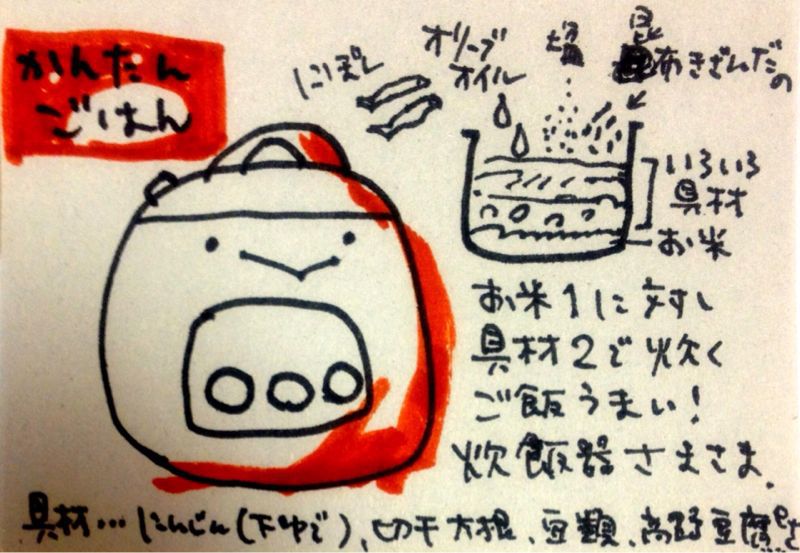 かんたん
ごはん
にぼし
オリーブ
オイル
塩
昆
あきざんだの
いろいろ
具材
お米
お米1に対し
具材2で炊く
ご飯うまい!
炊飯器さまさま.
具材…にんじん(下ゆで)、切干大根、豆類、高野豆腐